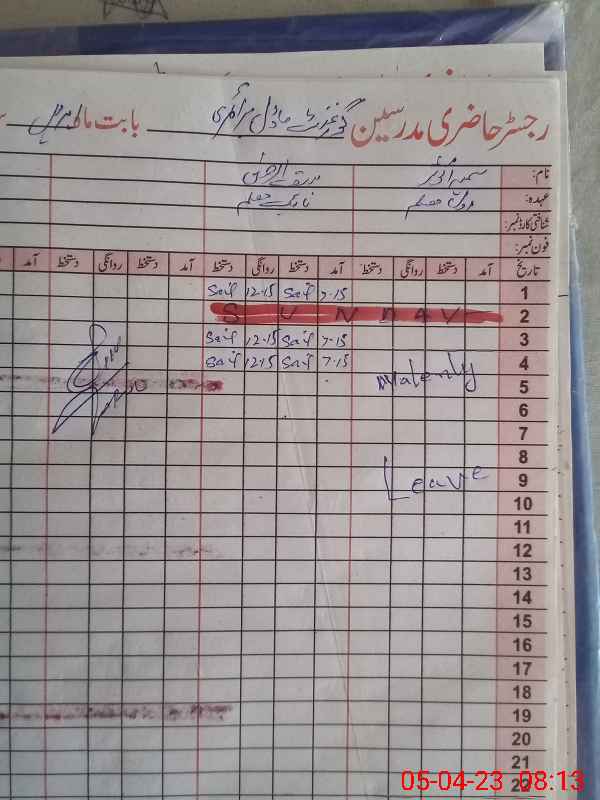 رجسٹر حاضری مدرسین گورنمنٹ ماڈل پرائمری بابت ماہ اپریل
نام:
عہدہ: معلم معلم
شناختی کارڈ نمبر:
فون نمبر:
تاریخ آمد دستخط روانگی دستخط آمد دستخط روانگی دستخط آمد دستخط روانگی دستخط آمد
1 7-15 Saif 12-15 Saif
2 SUNDAY
3 7-15 Saif 12-15 Saif
4 7-15 Saif 12-15 Saif
5 Matenly
6
7
8
9 Leave
10
11
12
13
14
15
16
17
18
19
20
21
22
05-04-23 08:13